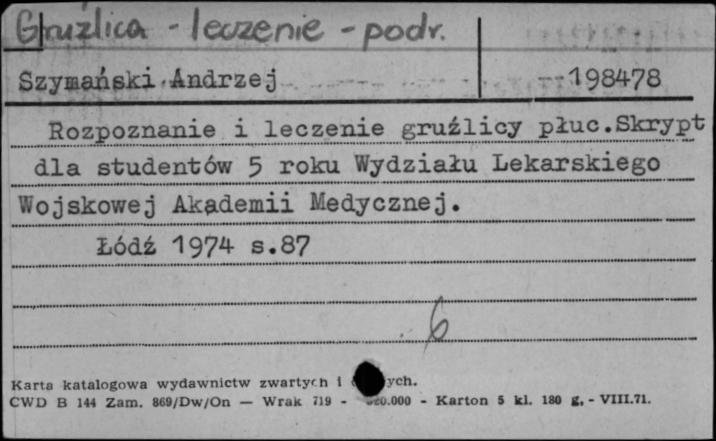 Gruźlica - leczenie - podr.
Szymański Andrzej 198478
Rozpoznanie i leczenie gruźlicy płuc.Skrypt
dla studentów 5 roku Wydziału Lekarskiego
Wojskowej Akademii Medycznej.
Łódź 1974 s.87
6
Karta katalogowa wydawnictw zwartych i
CWD B 144 Zam. 869/Dw/On — Wrak 719 - - Karton 5 kl. 180 g. - VIII.71.